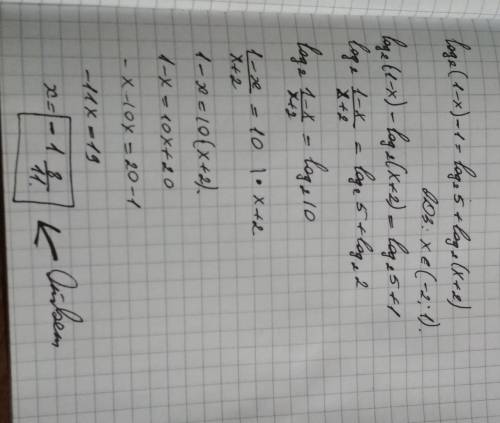 log₂(1-x)-1=log₂5+log₂(x+2)
ОДЗ: x∈(-2; 1).
log₂(1-x)-log₂(x+2)=log₂5+1
log₂ (1-x)/(x+2) = log₂5+log₂2
log₂ (1-x)/(x+2) = log₂10
(1-x)/(x+2) = 10 | • x+2
1-x=10(x+2).
1-x=10x+20
-x-10x=20-1
-11x=19
x= -1 8/11. ← Ответ